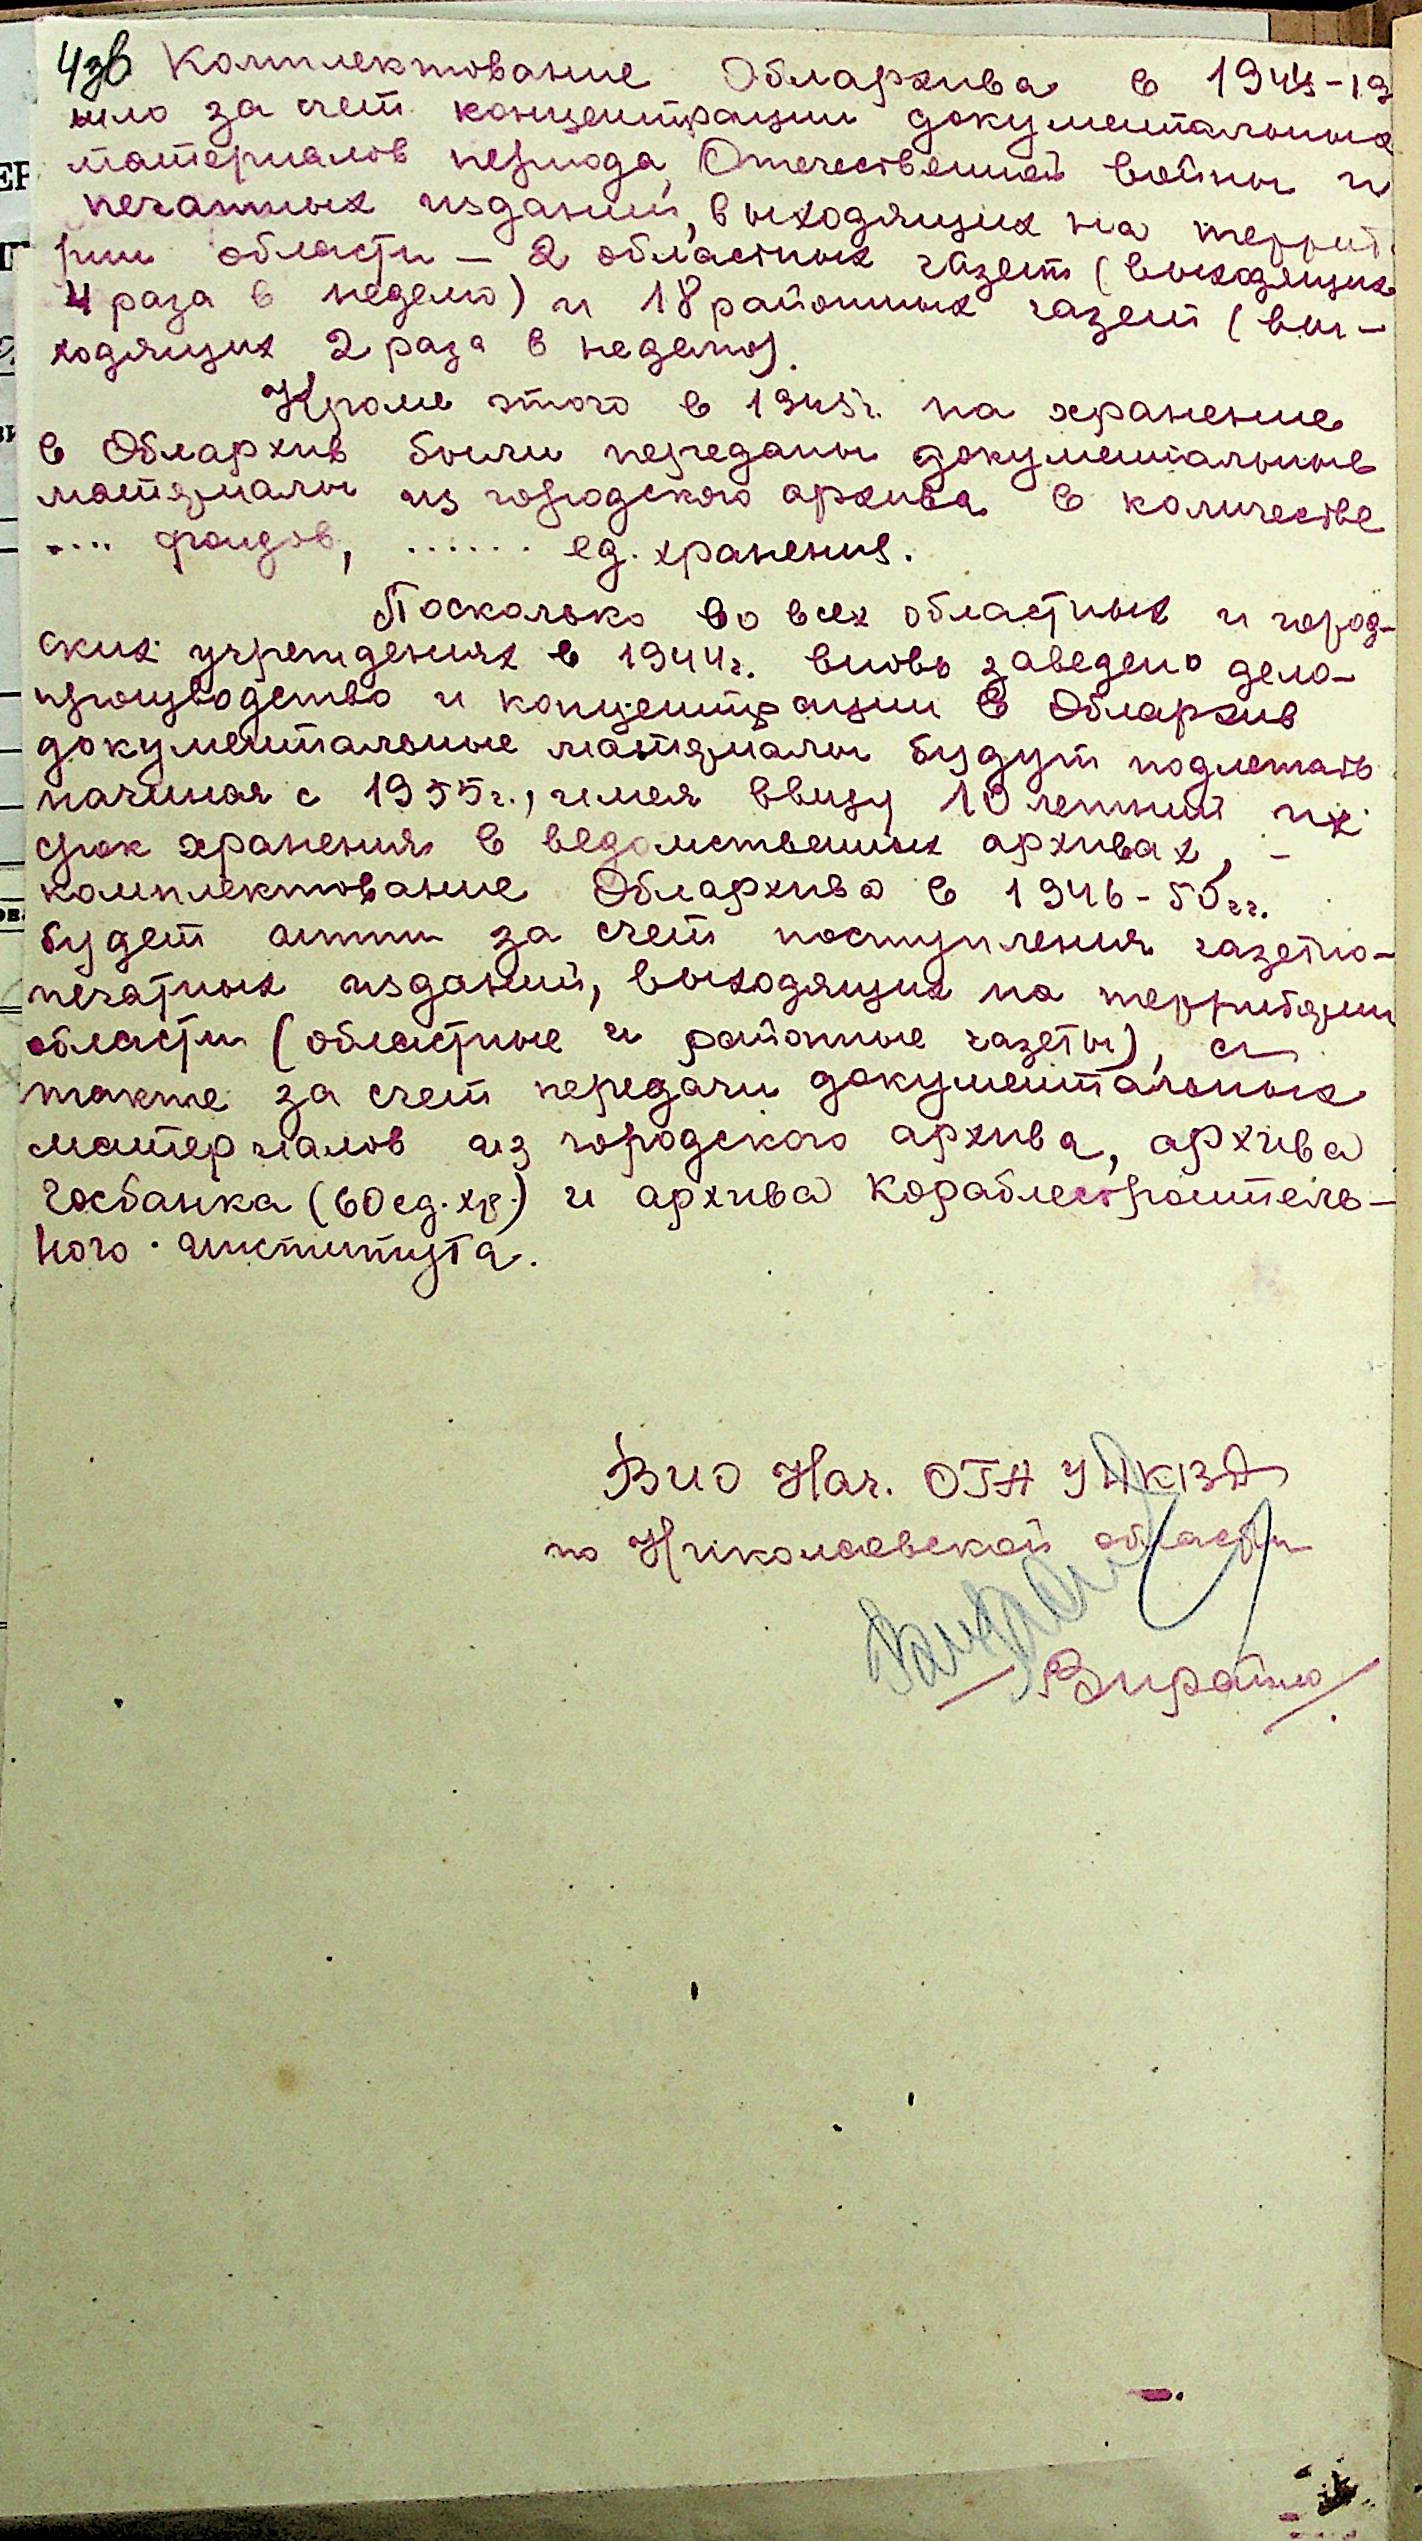 43в Комплектование Облархива в 1944-19
шло за счет концентрации документальных
материалов периода Отечественной войны и
печатных изданий, выходящих на террит
рии области – 2 областных газет (выходящих
4 раза в неделю) и 18 районных газет (вы-
ходящих 2 раза в неделю).
Кроме этого в 1945г. на хранение
в Облархив были переданы документальные
материалы из городского архива в количестве
.... фондов, ...... ед. хранения.
Посколько во всех областных и город-
ских учреждениях в 1944г. вновь заведено дело-
производство и концентрации в Облархив
документальные материалы будут подлежать
начиная с 1955г., имея ввиду 10 летний их
срок хранения в ведомственных архивах, –
комплектование Облархива в 1946-50гг.
будет итти за счет поступления газетно-
печатных изданий, выходящих на территории
области (областные и районные газеты), а
также за счет передачи документальных
материалов из городского архива, архива
Госбанка (60 ед. хр.) и архива Кораблестроитель-
ного института.
ВИО Нач. ОГА УНКВД
по Николаевской области